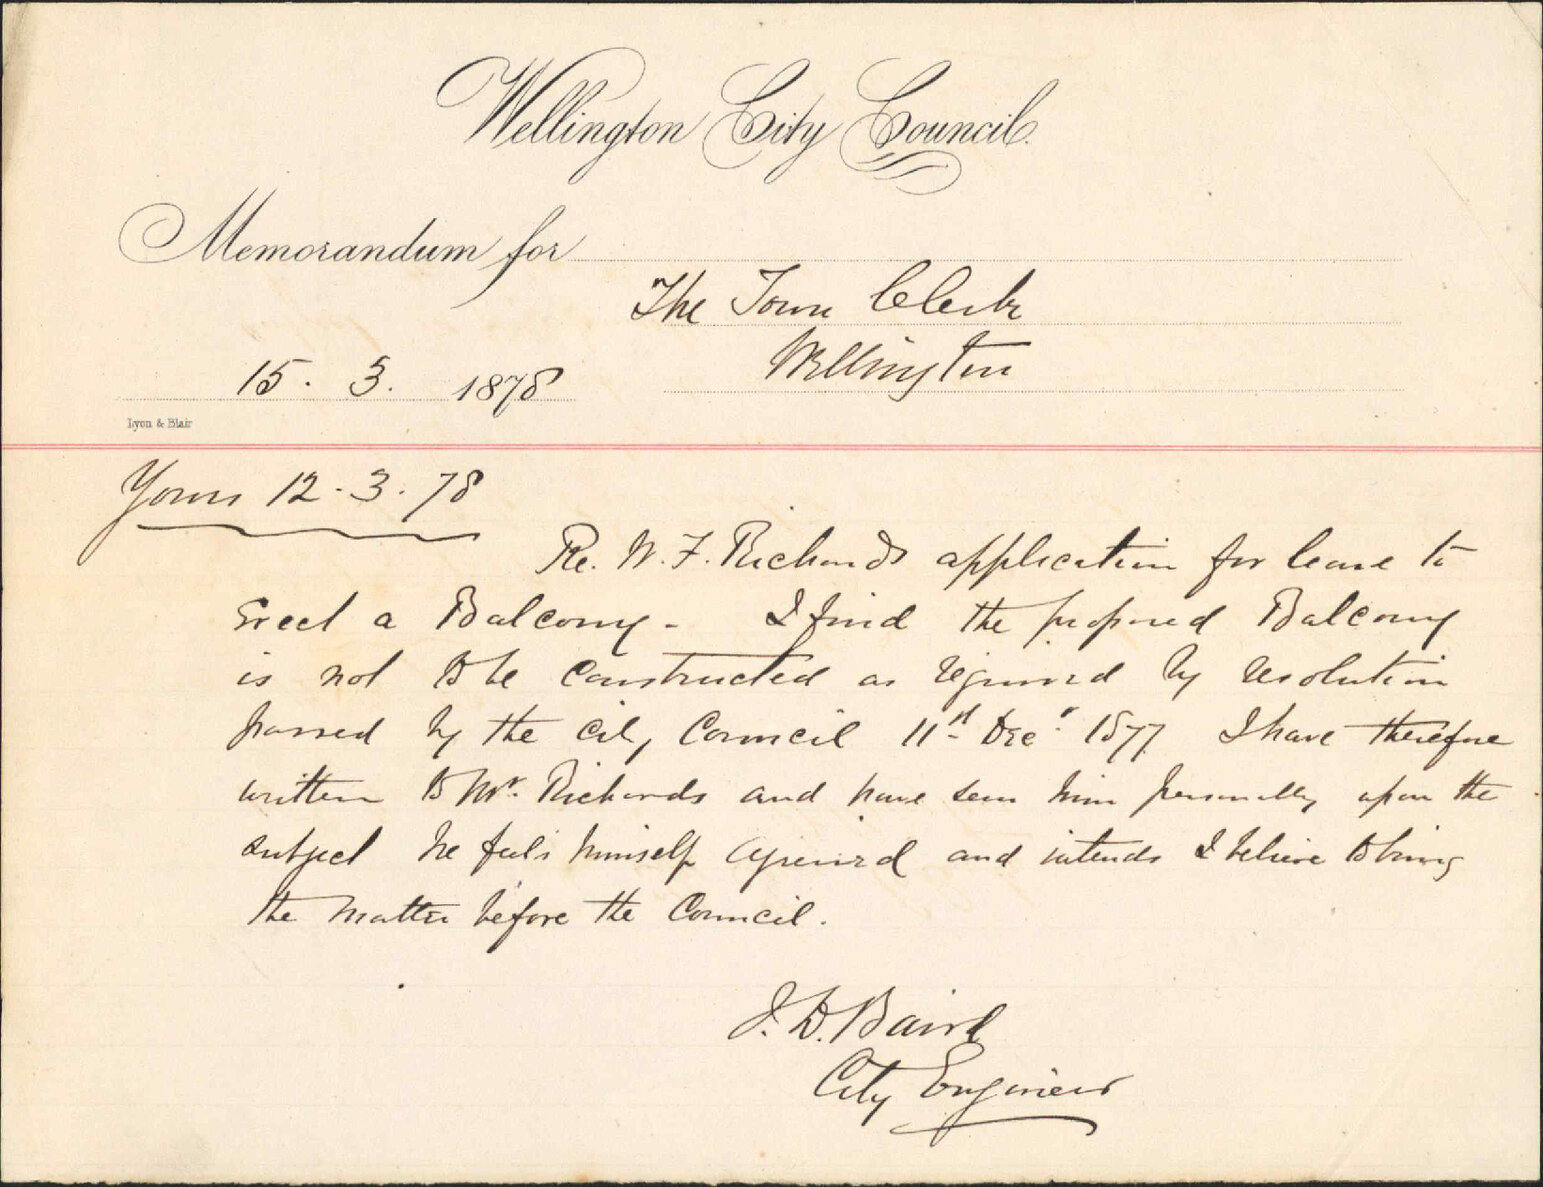 Wellington City Council.
Memorandum for
The Town Clerk
Wellington
15. 3. 1878
Lyon & Blair
Yours 12.3.78
Re. W. F. Richards application for leave to
Erect a Balcony - I find the proposed Balcony
is not to be constructed as required by resolution
passed by the City Council 11th Decr 1877 I have therefore
written to Mr. Richards and have seen him personally upon the
subject he feels himself agrieved and intends I believe to bring
the matter before the Council.
J. D. Baird
City Engineer